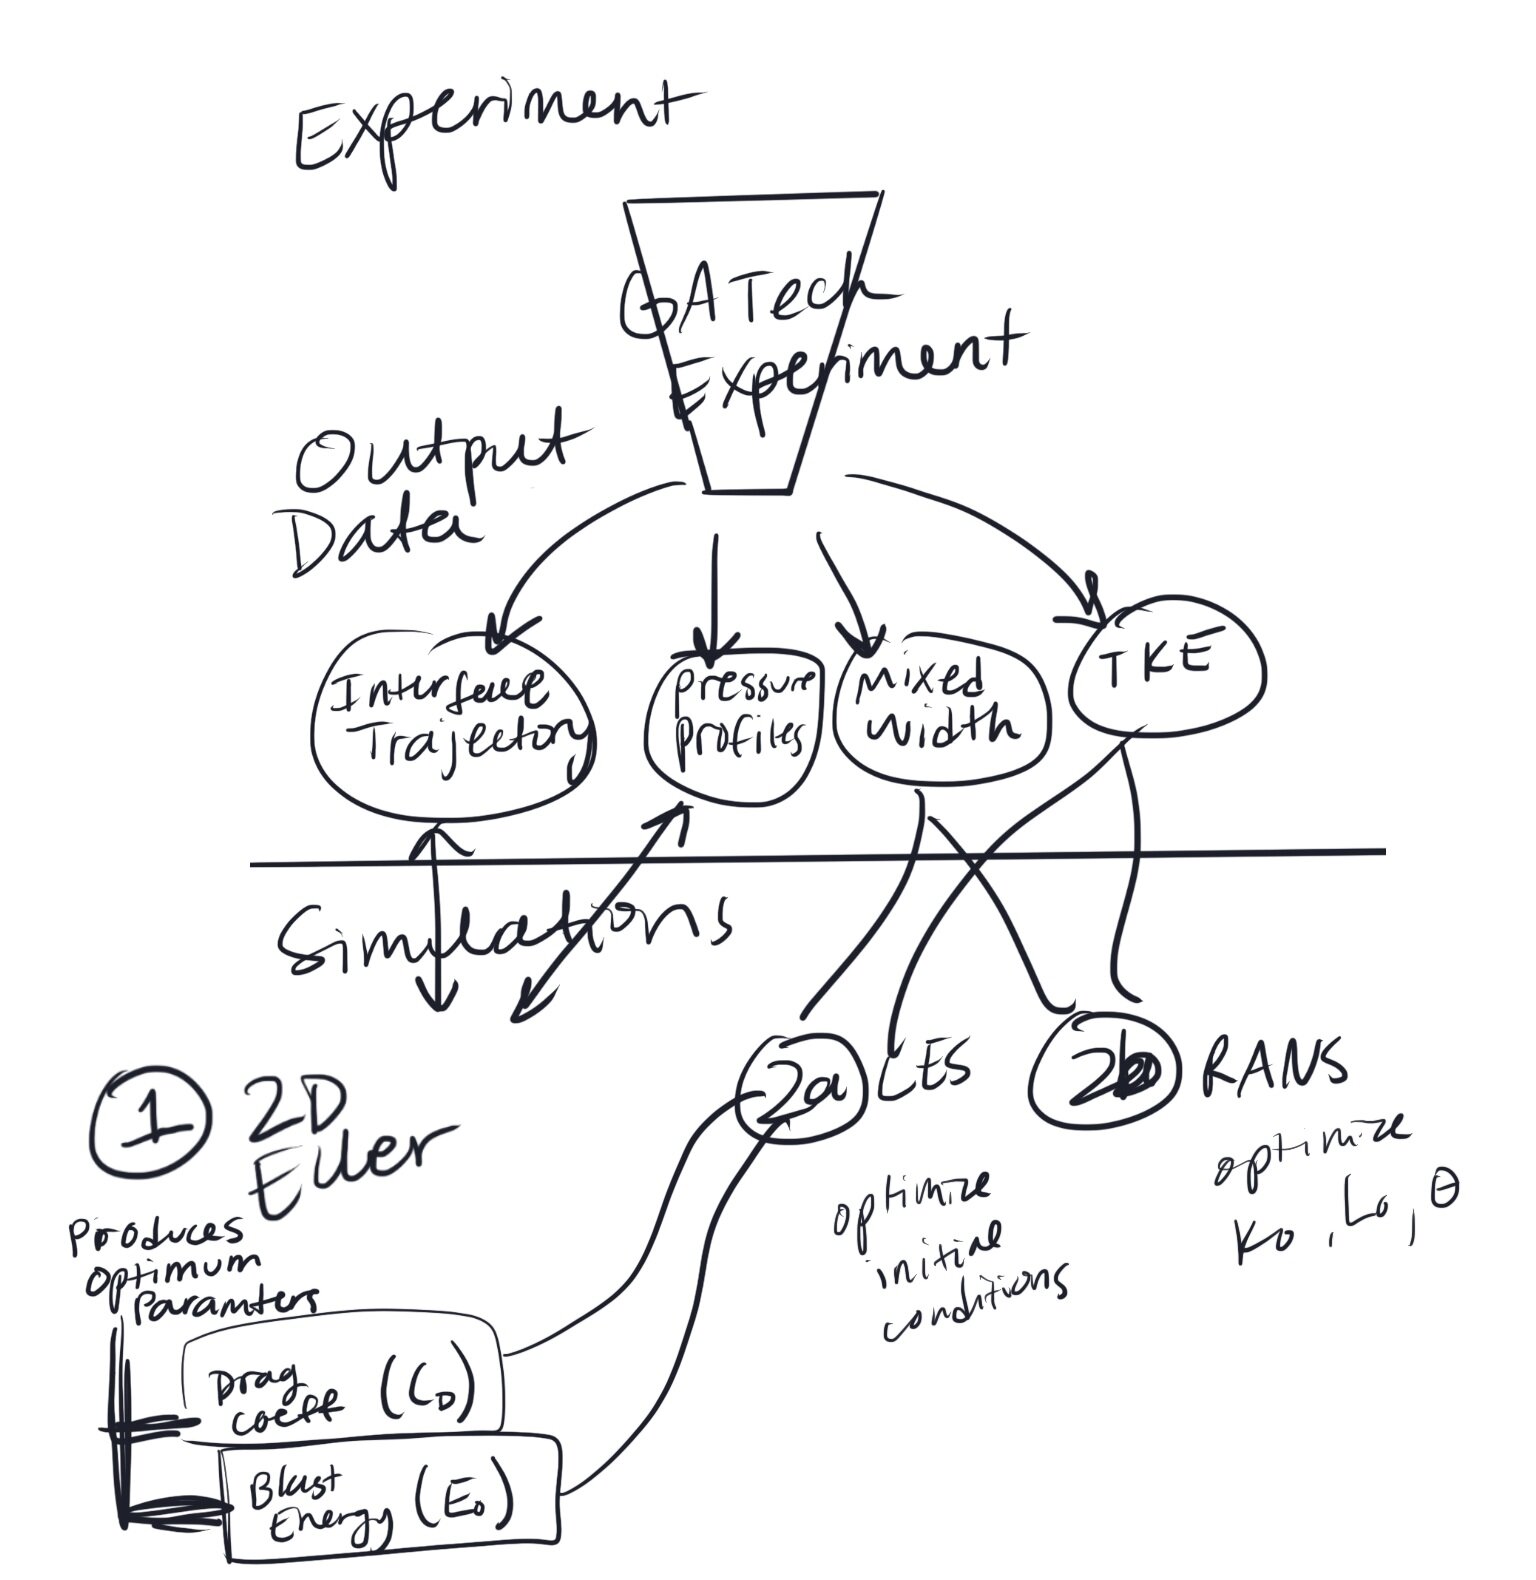 Experiment
GATech
Experiment
Output
Data
Interface
Trajectory
Pressure
Profiles
Mixed
Width
TKE
Simulations
1 2D
Euler
Produces
Optimum
Paramters
Drag
Coeff (CD)
Blast
Energy (E0)
2a LES
optimize
initial
conditions
2b RANS
optimize
K0, L0, θ